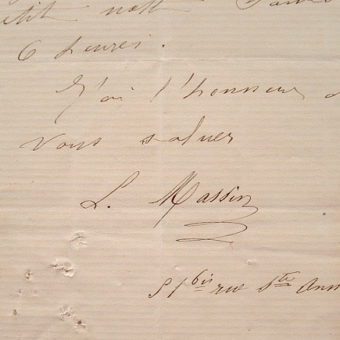 6 heures.
J'ai l'honneur d
vous saluer
L. Massin
51 bis rue Ste Ann